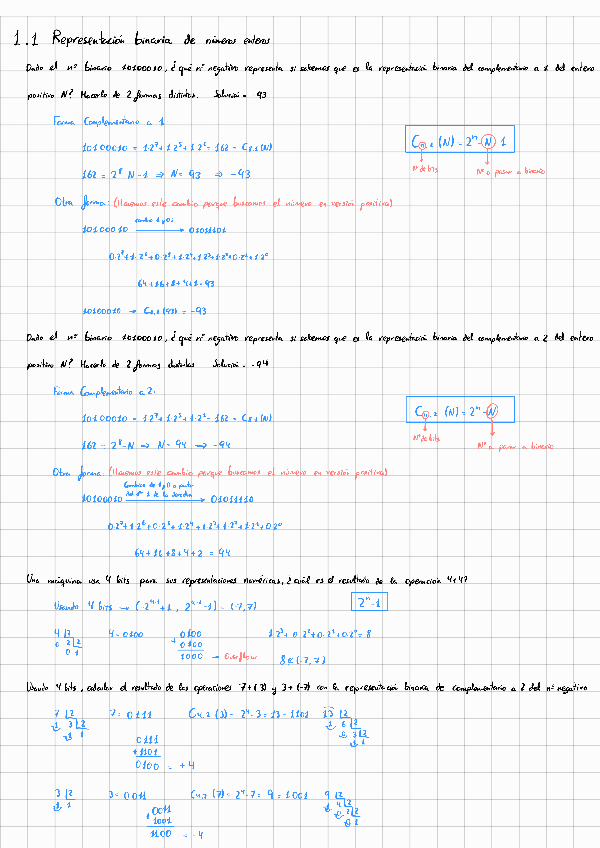 1.1 Representación binaria de números enteros
Dado el nº binario 10100010, ¿qué nº negativo representa si sabemos que es la representación binaria del complementario a 1 del entero
positivo N? Hacerlo de 2 formas distintas. Solución = -93
Forma Complementario a 1
C n,1 (N) = 2ⁿ-N-1
10100010 = 1·2⁷+1·2⁵+1·2¹ = 162 = C8,1(N)
Nº de bits
Nº a pasar a binario
162 = 2⁸-N-1 ⇒ N = 93 ⇒ -93
Otra forma: (Hacemos este cambio porque buscamos el número en versión positiva)
cambio 1 y 0s
10100010 → 01011101
0·2⁷+1·2⁶+0·2⁵+1·2⁴+1·2³+1·2²+0·2¹+1·2⁰
64+16+8+4+1=93
10100010 → C8,1(93) = -93
Dado el nº binario 10100010, ¿qué nº negativo representa si sabemos que es la representación binaria del complementario a 2 del entero
positivo N? Hacerlo de 2 formas distintas Solución = -94
Forma Complementario a 2:
C n,2 (N) = 2ⁿ-N
10100010 = 1·2⁷+1·2⁵+1·2¹ = 162 = C8,2(N)
Nº de bits
Nº a pasar a binario
162 = 2⁸-N ⇒ N = 94 ⇒ -94
Otra forma: (Hacemos este cambio porque buscamos el número en versión positiva)
Cambiar de 1 y 0 a partir
del 1º 1 de la derecha
10100010 → 01011110
0·2⁷+1·2⁶+0·2⁵+1·2⁴+1·2³+1·2²+1·2¹+0·2⁰
64+16+8+4+2 = 94
Una máquina usa 4 bits para sus representaciones numéricas, ¿cuál es el resultado de la operación 4+4?
Usando 4 bits → (-2⁴⁻¹+1, 2⁴⁻¹-1) = (-7,7)
2ⁿ-1
4 |2
0 2 |2
0 1
4 = 0100
0100
+ 0100
1000 → Overflow
1·2³+0·2²+0·2¹+0·2⁰ = 8
8∉(-7,7)
Usando 4 bits, calcular el resultado de las operaciones 7+(-3) y 3+(-7) con la representación binaria de complementario a 2 del nº negativo
7 |2
1 3 |2
1 1
7 = 0111
C4,2 (3) = 2⁴-3 = 13 = 1101
13 |2
1 6 |2
0 3 |2
1 1
0111
+1101
0100 = +4
3 |2
1 1
3 = 0011
C4,2 (7) = 2⁴-7 = 9 = 1001
9 |2
1 4 |2
0 2 |2
0 1
0011
+ 1001
1100 = -4